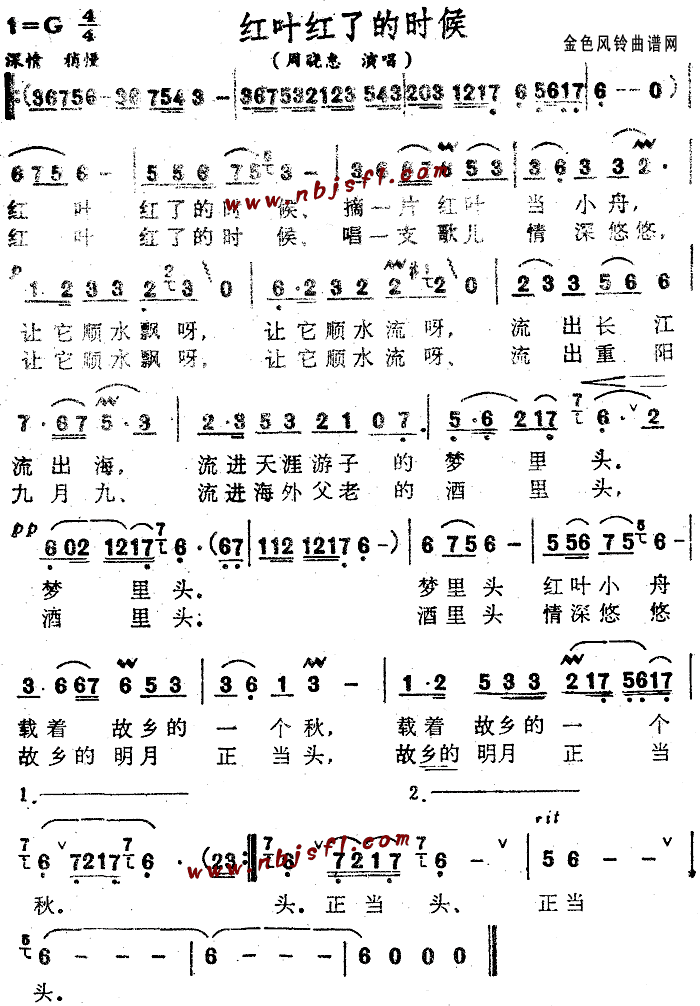 1=G 4/4 红叶红了的时候
深情 稍慢 (周晓惠 演唱) 金色风铃曲谱网
:(36756-36 7543 - 367532123 543 203 1217 6 5617 6 - - 0)
6 75 6 - 55 6 75 3 - 3 6 67 6 53 3 6 3 3 2 ·
红 叶 红了的时 候、 摘一片红叶 当 小舟,
红 叶 红了的时 候、 唱一支歌儿 情 深悠悠,
www.nbjsfl.com
p 1· 2 3 3 2 3 0 6·2 3 2 2 2 0 2 3 3 5 6 6
让它顺水飘呀, 让它顺水流呀, 流出长江
让它顺水飘呀, 让它顺水流呀、 流出重阳
7·67 5·3 2·3 5 3 2 1 0 7· 5·6 217 6 · 2
流出海, 流进天涯游子的梦里头.
九月九、 流进海外父老的酒里头,
pp 602 1217 6·(67 112 1217 6 -) 6 75 6 - 556 75 6 -
梦 里头. 梦里头 红叶小舟
酒 里头; 酒里头 情深悠悠
3·667 6 53 3 6 1 3 - 1·2 533 217 5617
载着 故乡的 一个秋, 载着 故乡的一 个
故乡的 明月 正 当头, 故乡的 明月 正 当
1. 2.
rit
6 7217 6 · (23 : 6 7217 6 - 5 6 - -
www.nbjsfl.com
秋. 头.正当 头、 正当
6 - - - 6 - - - 6 0 0 0
头.